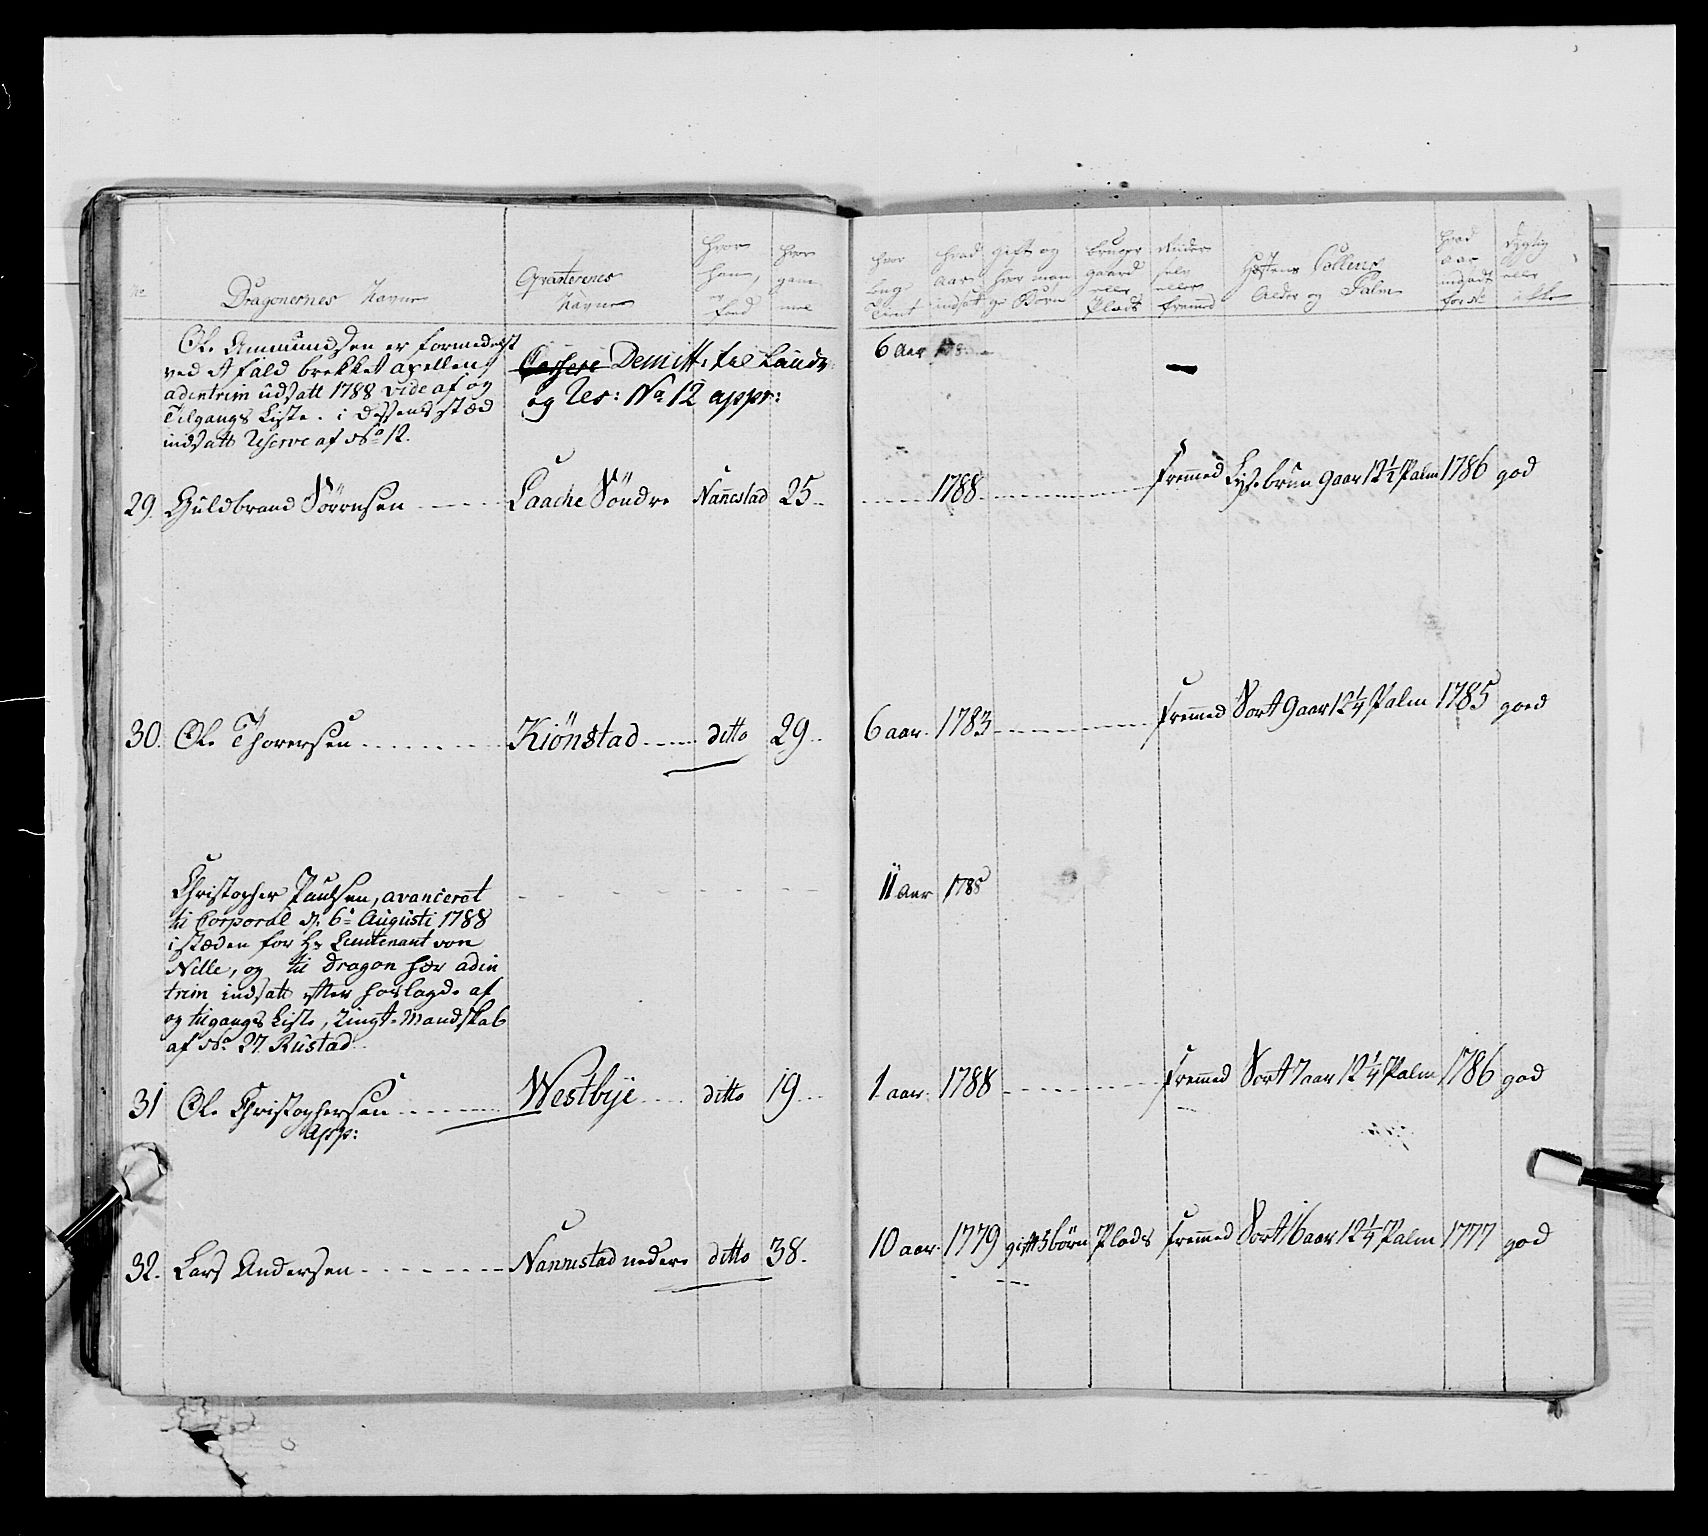 No
Dragonernes Navne
Qvarterenes
Navne
hvor
han
er
fød
hvor
gam
mel
hvor
lenge
Tient
hvad
Aar
indsat
gift og
hvor man
ge Børn
bruger
gaard
eller
Plads
Under
selv
eller
fremmed
Hæstens Couleur
Alder og Palm
hvad
aar
indsadt
for No
dygtig
eller
ikke
Ole Ammundsen er formedelst
ved et fald brekket axellen,
adintrim udsatt 1788 vide af og
Tilgangs Liste. i dessens stæd
indsatt Reserve af No 12.
Cassere Demitt: til Landv:
og Res: No 12 appr:
6 Aar
29. Guldbrand Sørensen Laache Söndre Nannestad 25 1788 fremmed Lysebrun 9 aar 12 1/2 Palm 1786 god
30. Ole Thorersen Kiönstad ditto 29 6 aar 1783 fremmed Sort 9 aar 12 1/4 Palm 1785 goed
Christopher Paulsen, avanceret 11 Aar 1785
til Corporal d. 6te Augusti 1788
i stæden for Hr Lieutenant von
Nelle, og til Dragon her adin
trim indsatt efter forslagde af
og tilgangs Liste, Ringt Mandskab
af No 27 Rustad
31 Ole Christophersen Westbye ditto 19 1 aar 1788 fremmed Sort 7 aar 12 1/4 Palm 1786 god
App:
32. Lars Andersen Nannestad nedere ditto 38. 10 aar 1779 gift 5 børn Plads fremmed Sort 16 aar 12 1/4 Palm 1777 god